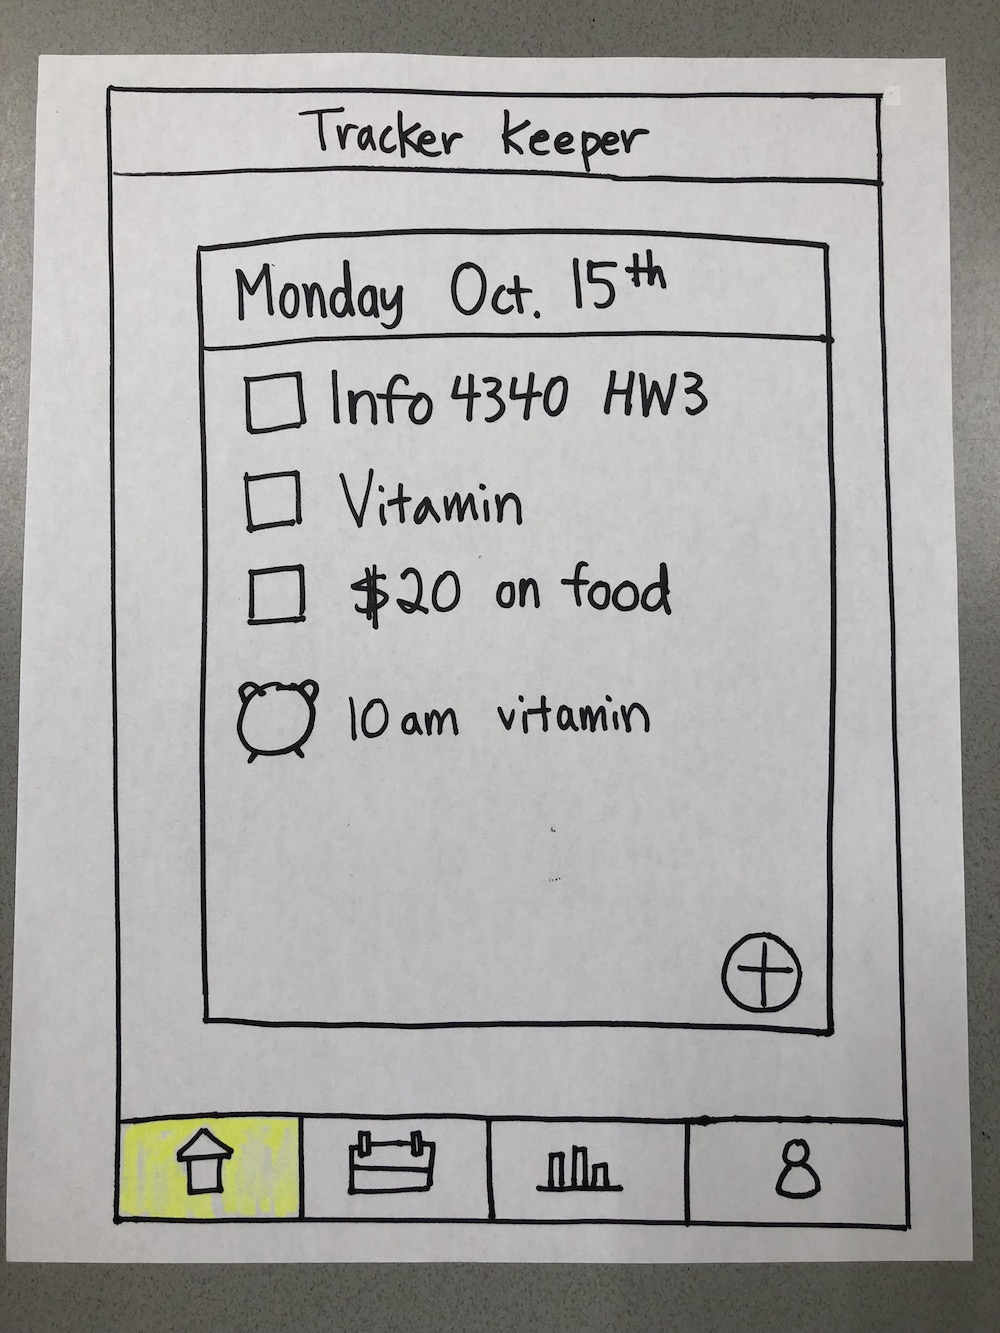 Tracker Keeper
Monday Oct. 15th
Info 4340 HW3
Vitamin
$20 on food
10 am vitamin